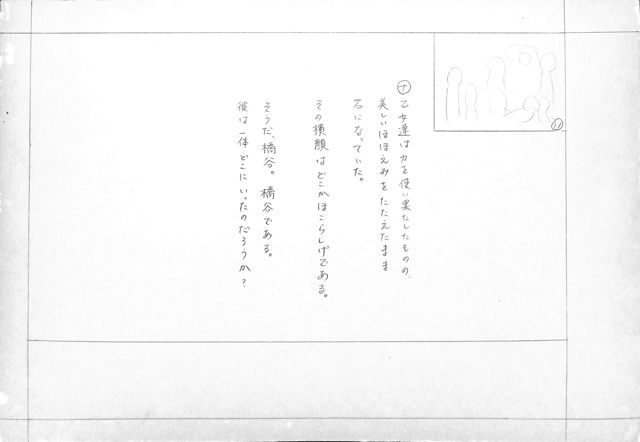 ㋤ 乙女達は力を使い果たしたものの、
美しいほほえみをたたえたまま
石になっていた。
その横顔はどこかほこらしげである。
そうだ、橋谷。橋谷である。
彼は一体どこにいったのだろうか?